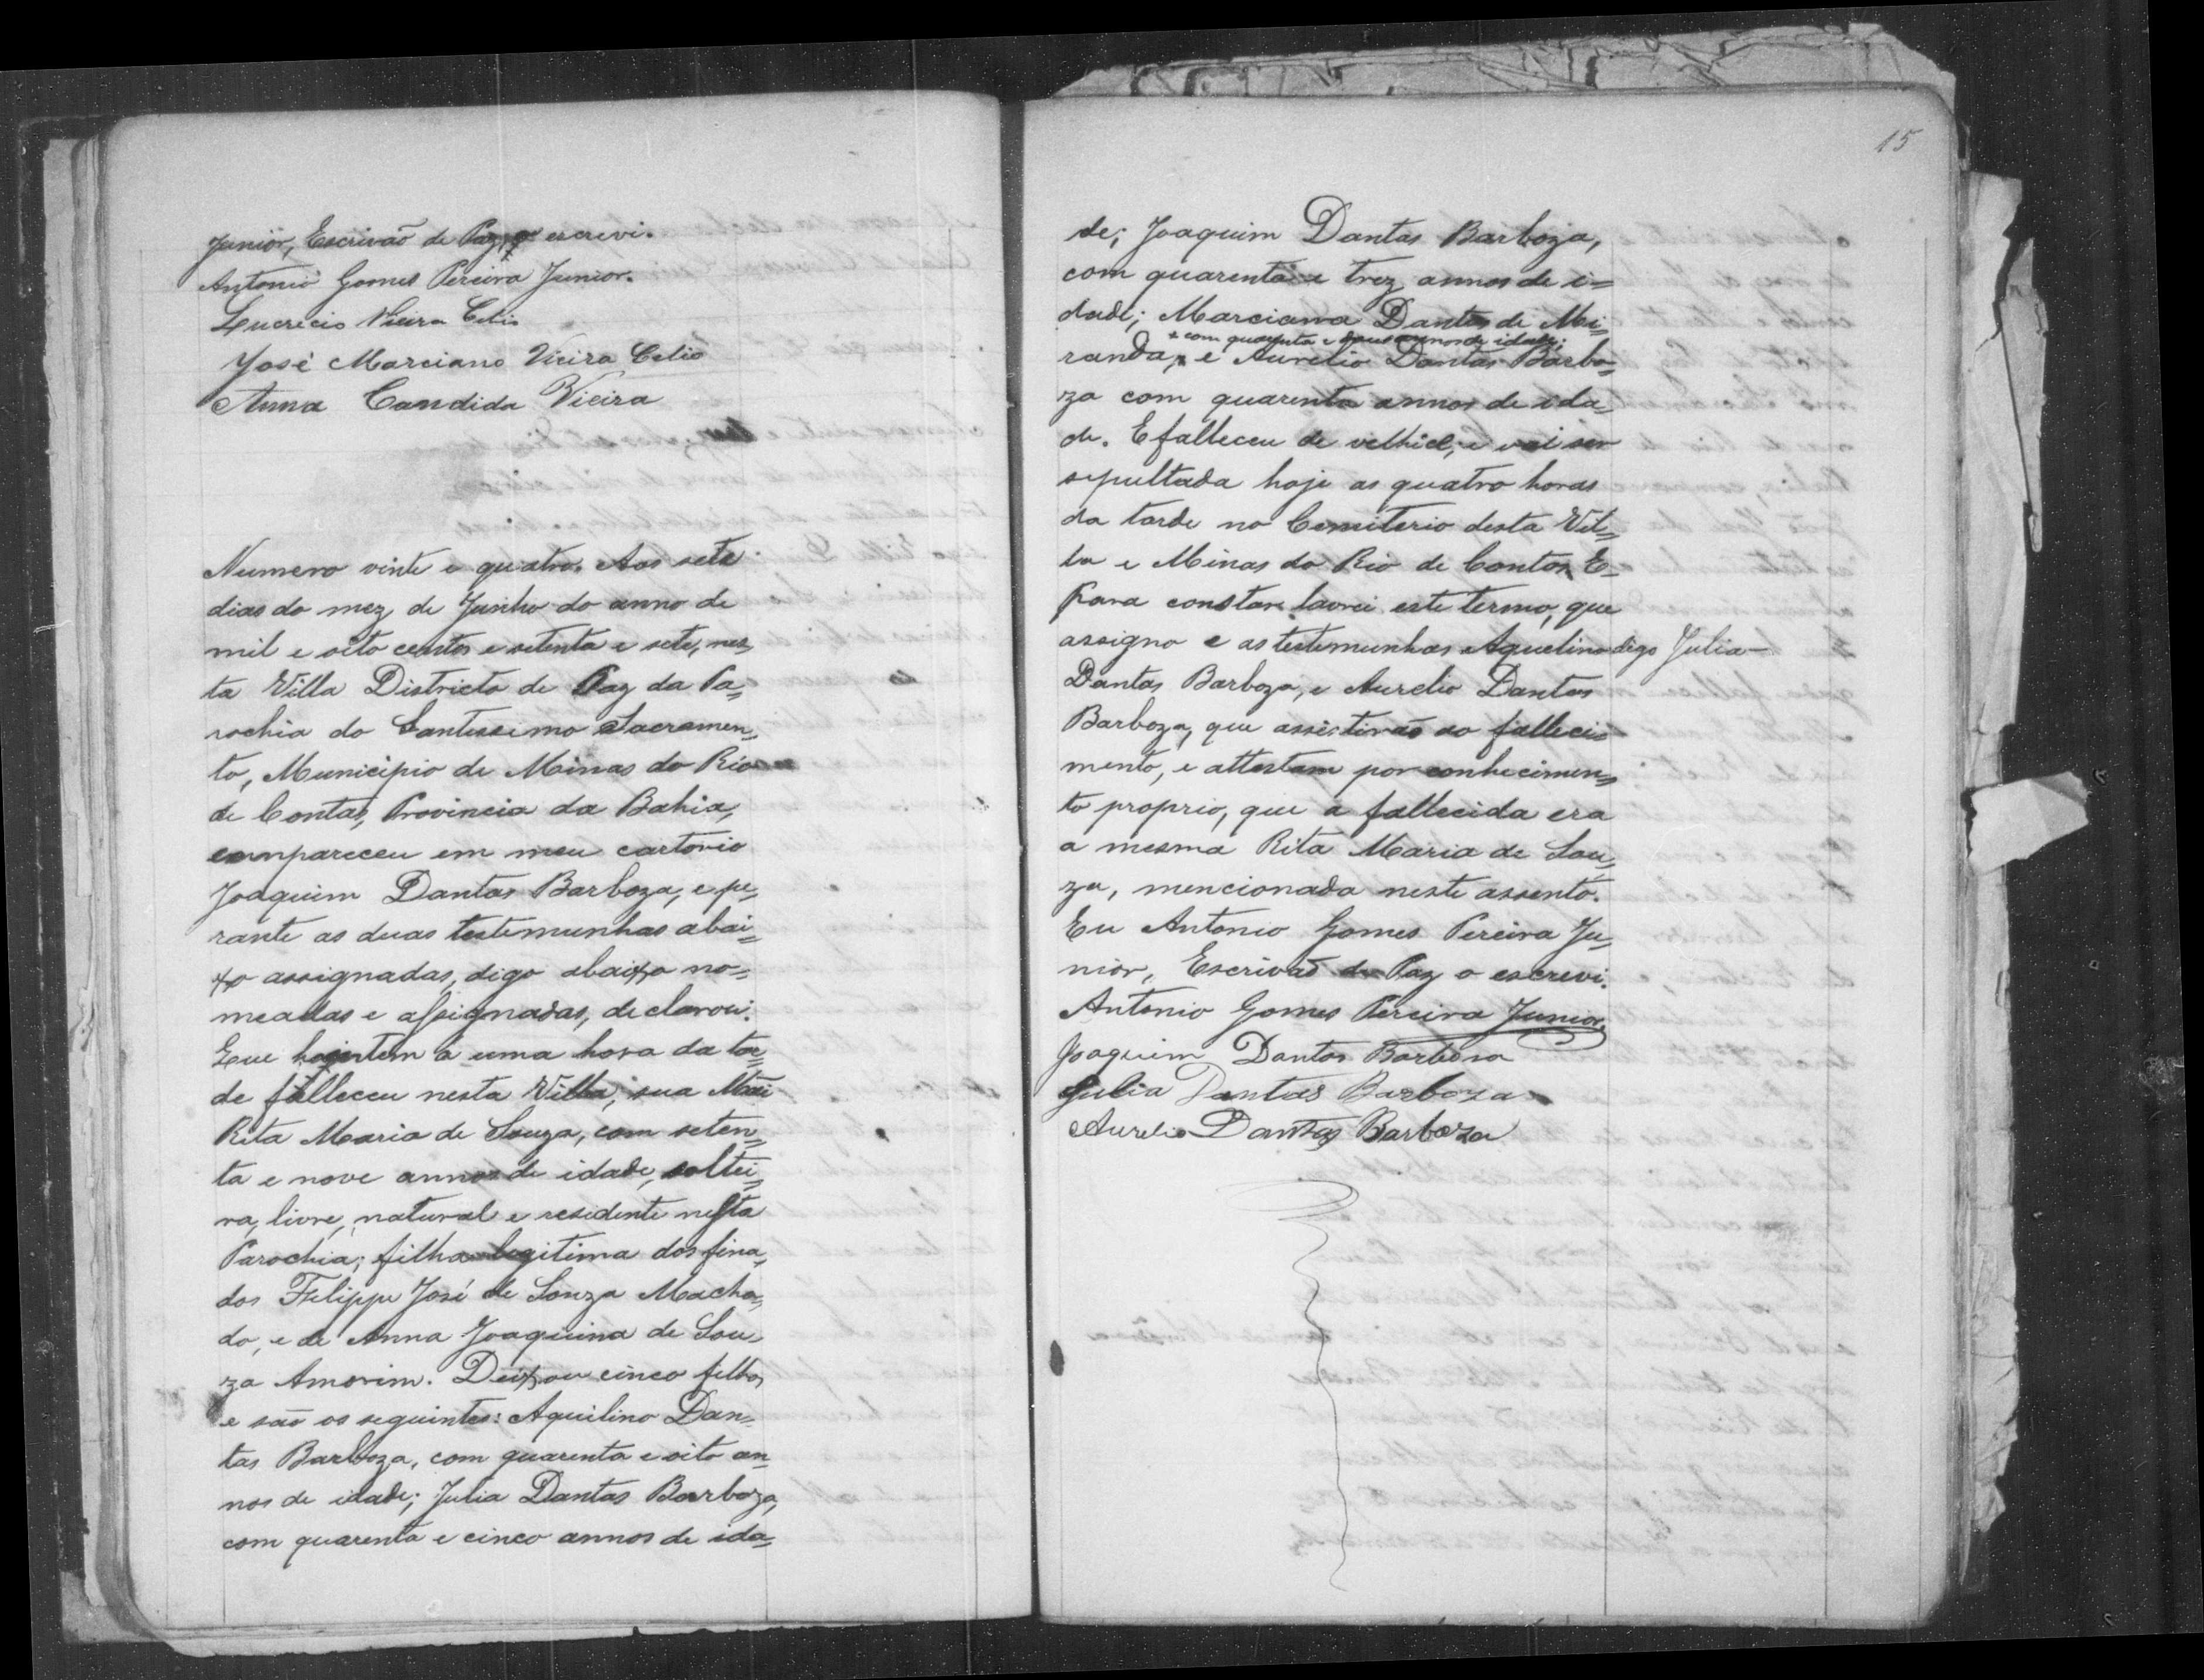 Junior, Escrivão de Paz, q' escrevi.
Antonio Gomes Pereira Junior.
Lucrecio Vieira Celio
José Marciano Vieira Celio
Anna Candida Vieira
Numero vinte e quatro. Aos sete
dias do mez de Junho do anno de
mil e oito centos e setenta e sete, nes
ta Villa Districto de Paz da Pa=
rochia do Santissimo Sacramen=
to, Municipio de Minas do Rio
de Contas, Provincia da Bahia,
compareceu em meu cartorio
Joaquim Dantas Barboza, e pe=
rante as duas testemunhas abai=
xo assignadas, digo abaixo no=
meadas e assignadas, declarou:
Que hontem á uma hora da tar=
de falleceu nesta Villa, sua Mãi
Rita Maria de Souza, com seten=
ta e nove annos de idade, soltei=
ra, livre, natural e residente nesta
Parochia; filha legitima dos fina=
dos Felippe José de Souza Macha=
do, e de Anna Joaquina de Sou=
za Amorim. Deixou cinco filhos
e são os seguintes: Aquilino Dan=
tas Barboza, com quarenta e oito an=
nos de idade; Julia Dantas Barboza,
com quarenta e cinco annos de ida=
15
de; Joaquim Dantas Barboza,
com quarenta e trez annos de i=
dade; Marciana Dantas de Mi=
* com quarenta e annos de idade;
randa,* e Aurelio Dantas Barbo=
za com quarenta annos de ida=
de. E falleceu de velhice; e vai ser
sepultada hoje as quatro horas
da tarde no Cemiterio desta Vil=
la e Minas do Rio de Contas. E
para constar lavrei este termo, que
assigno e as testemunhas Aquelino digo Julia
Dantas Barboza, e Aurelio Dantas
Barboza, que assistirão ao falleci=
mento, e attestam por conhecimen=
to proprio, que a fallecida era
a mesma Rita Maria de Sou=
za, mencionada neste assento.
Eu Antonio Gomes Pereira Ju=
nior, Escrivão de Paz o escrevi.
Antonio Gomes Pereira Junior.
Joaquim Dantas Barbosa
Julia Dantas Barboza
Aurelio Dantas Barboza